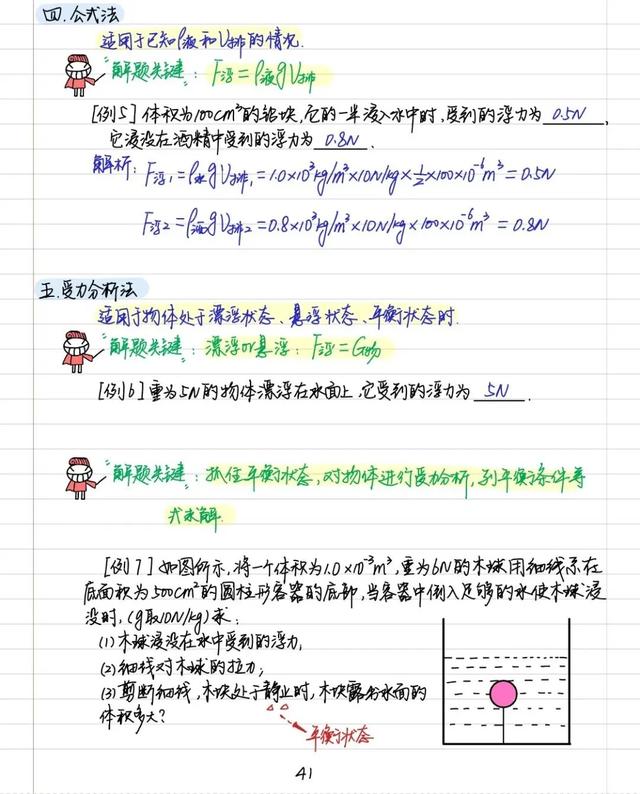 四.公式法
适用于已知ρ液和V排的情况.
解题关键：F浮=ρ液gV排
[例5]体积为100cm³的铝块,它的一半浸入水中时,受到的浮力为 0.5N ,
它浸没在酒精中受到的浮力为 0.8N .
解析：F浮1=ρ水gV排1=1.0×10³kg/m³×10N/kg×½×100×10⁻⁶m³=0.5N
F浮2=ρ酒gV排2=0.8×10³kg/m³×10N/kg×100×10⁻⁶m³=0.8N
五.受力分析法
适用于物体处于漂浮状态、悬浮状态、平衡状态时.
解题关键：漂浮or悬浮：F浮=G物
[例6]重为5N的物体漂浮在水面上,它受到的浮力为 5N .
解题关键：抓住平衡状态,对物体进行受力分析,列平衡条件等
式求解.
[例7]如图所示,将一个体积为1.0×10⁻³m³,重为6N的木球用细线系在
底面积为500cm²的圆柱形容器的底部,当容器中倒入足够的水使木球浸
没时,(g取10N/kg)求：
(1)木球浸没在水中受到的浮力;
(2)细线对木球的拉力;
(3)剪断细线,木块处于静止时,木块露出水面的
体积多大?
平衡状态
41